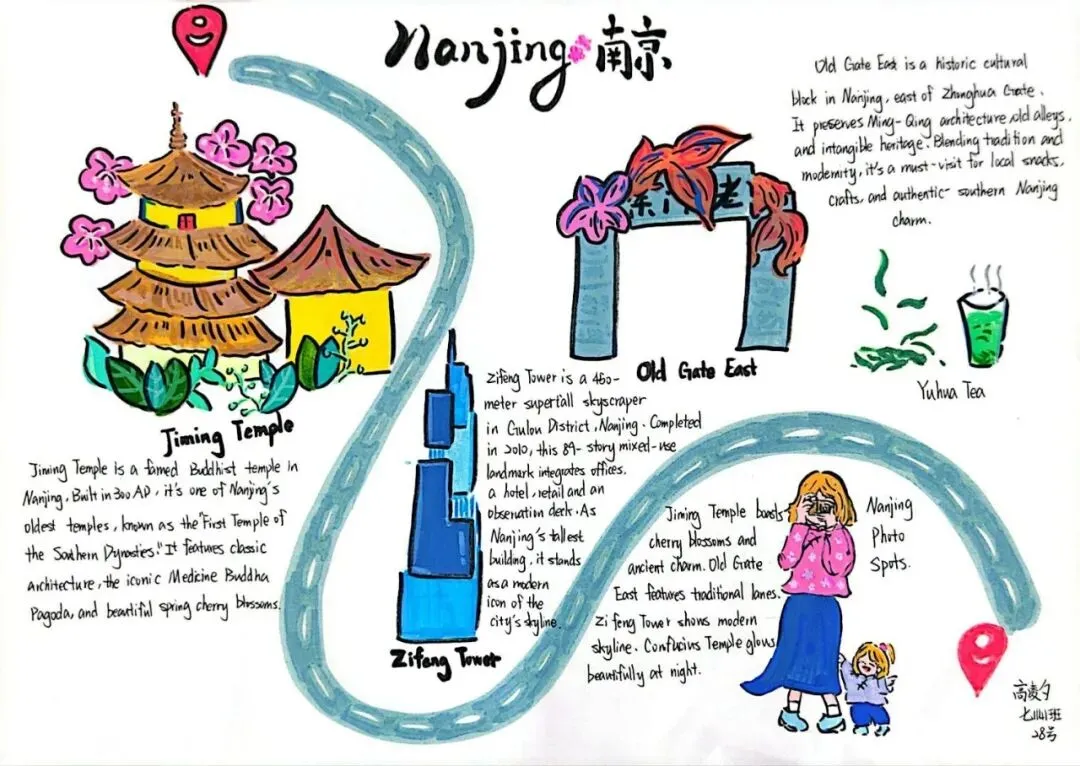 Nanjing 南京
Old Gate East is a historic cultural
block in Nanjing, east of Zhonghua Gate.
It preserves Ming-Qing architecture, old alleys,
and intangible heritage. Blending tradition and
modernity, it's a must-visit for local snacks,
crafts, and authentic southern Nanjing
charm.
老门东
Old Gate East
Yuhua Tea
Jiming Temple
Jiming Temple is a famed Buddhist temple in
Nanjing. Built in 300 AD, it's one of Nanjing's
oldest temples, known as the "First Temple of
the Southern Dynasties." It features classic
architecture, the iconic Medicine Buddha
Pagoda, and beautiful spring cherry blossoms.
Zifeng Tower is a 450-
meter supertall skyscraper
in Gulou District, Nanjing. Completed
in 2010, this 89-story mixed-use
landmark integrates offices,
a hotel, retail and an
observation deck. As
Nanjing's tallest
building, it stands
as a modern
icon of the
city's skyline.
Zifeng Tower
Jiming Temple boasts
cherry blossoms and
ancient charm. Old Gate
East features traditional lanes.
Zifeng Tower shows modern
skyline. Confucius Temple glows
beautifully at night.
Nanjing
Photo
Spots.
高
夕
班
28号